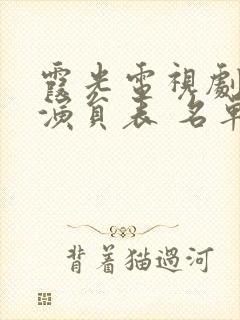 霞光電視劇
演員表 名單
背着猫過河